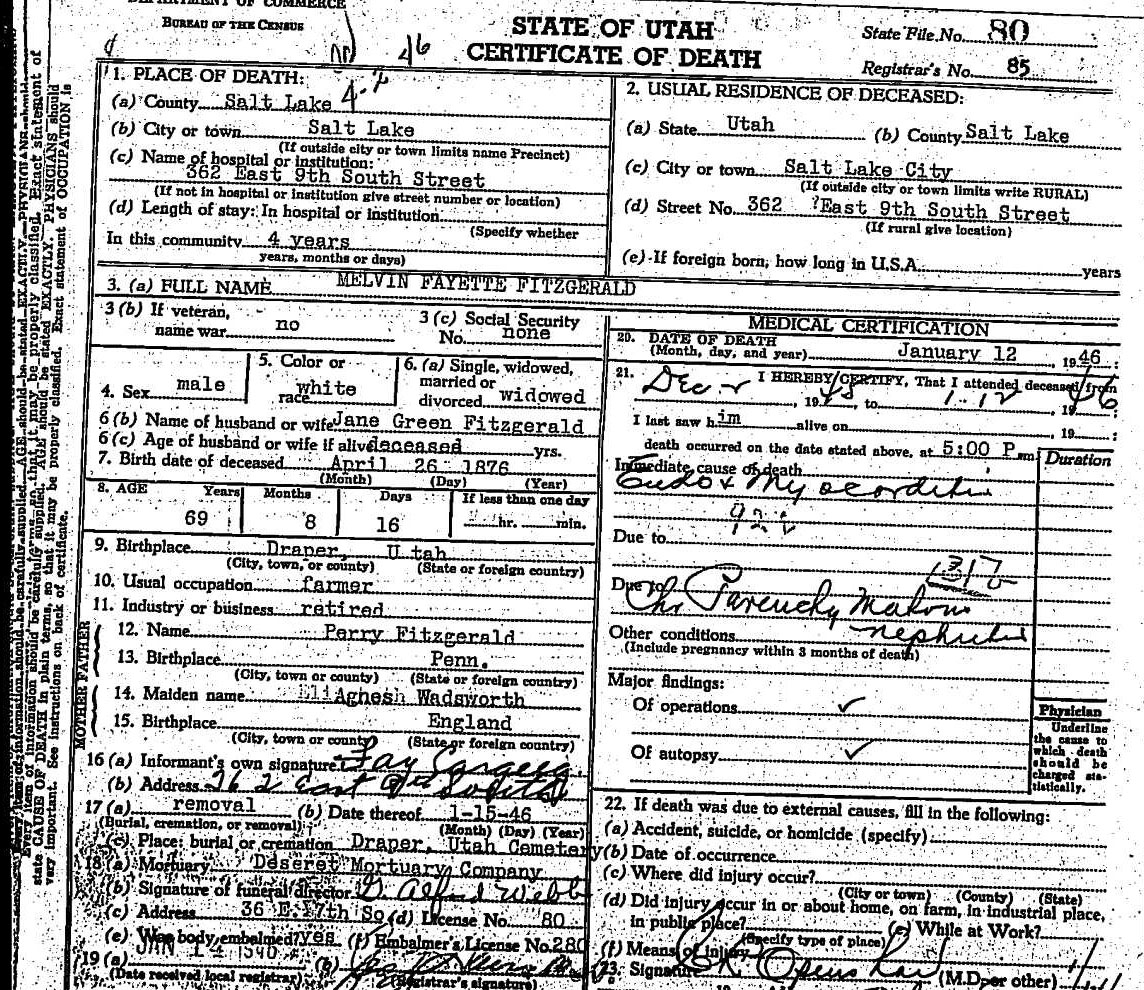 DEPARTMENT OF COMMERCE
BUREAU OF THE CENSUS
46
STATE OF UTAH
CERTIFICATE OF DEATH
State File No. 80
Registrar's No. 85
1. PLACE OF DEATH:
(a) County Salt Lake
(b) City or town Salt Lake
(If outside city or town limits name Precinct)
(c) Name of hospital or institution:
362 East 9th South Street
(If not in hospital or institution give street number or location)
(d) Length of stay: In hospital or institution
(Specify whether
In this community 4 years
years, months or days)
2. USUAL RESIDENCE OF DECEASED:
(a) State Utah (b) County Salt Lake
(c) City or town Salt Lake City
(If outside city or town limits write RURAL)
(d) Street No. 362 East 9th South Street
(If rural give location)
(e) If foreign born, how long in U.S.A. years
3. (a) FULL NAME MELVIN FAYETTE FITZGERALD
3 (b) If veteran, name war no
3 (c) Social Security No. none
4. Sex male
5. Color or race white
6. (a) Single, widowed, married or divorced widowed
6 (b) Name of husband or wife Jane Green Fitzgerald
6 (c) Age of husband or wife if alive deceased yrs.
7. Birth date of deceased April 26 1876
(Month) (Day) (Year)
8. AGE Years Months Days If less than one day
69 8 16 hr. min.
9. Birthplace Draper, Utah
(City, town, or county) (State or foreign country)
10. Usual occupation farmer
11. Industry or business retired
FATHER
12. Name Perry Fitzgerald
13. Birthplace Penn.
(City, town or county) (State or foreign country)
MOTHER
14. Maiden name Aghesh Wadsworth
15. Birthplace England
(City, town or county (State or foreign country)
16 (a) Informant's own signature Fay
(b) Address 362 East
17 (a) removal (b) Date thereof 1-15-46
(Burial, cremation, or removal) (Month) (Day) (Year)
(c) Place: burial or cremation Draper, Utah Cemetery
18 (a) Mortuary Deseret Mortuary Company
(b) Signature of funeral director D. Alfred Webb
(c) Address 36 E. 7th So. (d) License No. 80
(e) Was body embalmed? yes (f) Embalmer's License No. 280
19 (a) JAN 14 (b)
(Date received local registrar) (Registrar's signature)
MEDICAL CERTIFICATION
20. DATE OF DEATH
(Month, day, and year) January 12 1946
21. I HEREBY CERTIFY, That I attended deceased from
Dec 1945, to 1-12 1946
I last saw him alive on , 19 ;
death occurred on the date stated above, at 5:00 P m
Duration
Immediate cause of death
Endo & Myocarditis
Due to
Due to
Chr Parenchymatous
nephritis
Other conditions
(Include pregnancy within 3 months of death)
Major findings:
Of operations ✓
Of autopsy ✓
Physician
Underline
the cause to
which death
should be
charged sta-
tistically.
22. If death was due to external causes, fill in the following:
(a) Accident, suicide, or homicide (specify)
(b) Date of occurrence
(c) Where did injury occur?
(City or town) (County) (State)
(d) Did injury occur in or about home, on farm, in industrial place,
in public place? (e) While at Work?
(Specify type of place)
(f) Means of injury
23. Signature (M.D. or other)
state CAUSE OF DEATH in plain terms, so that it may be properly classified. Exact statement of OCCUPATION is
very important. See instructions on back of certificate.